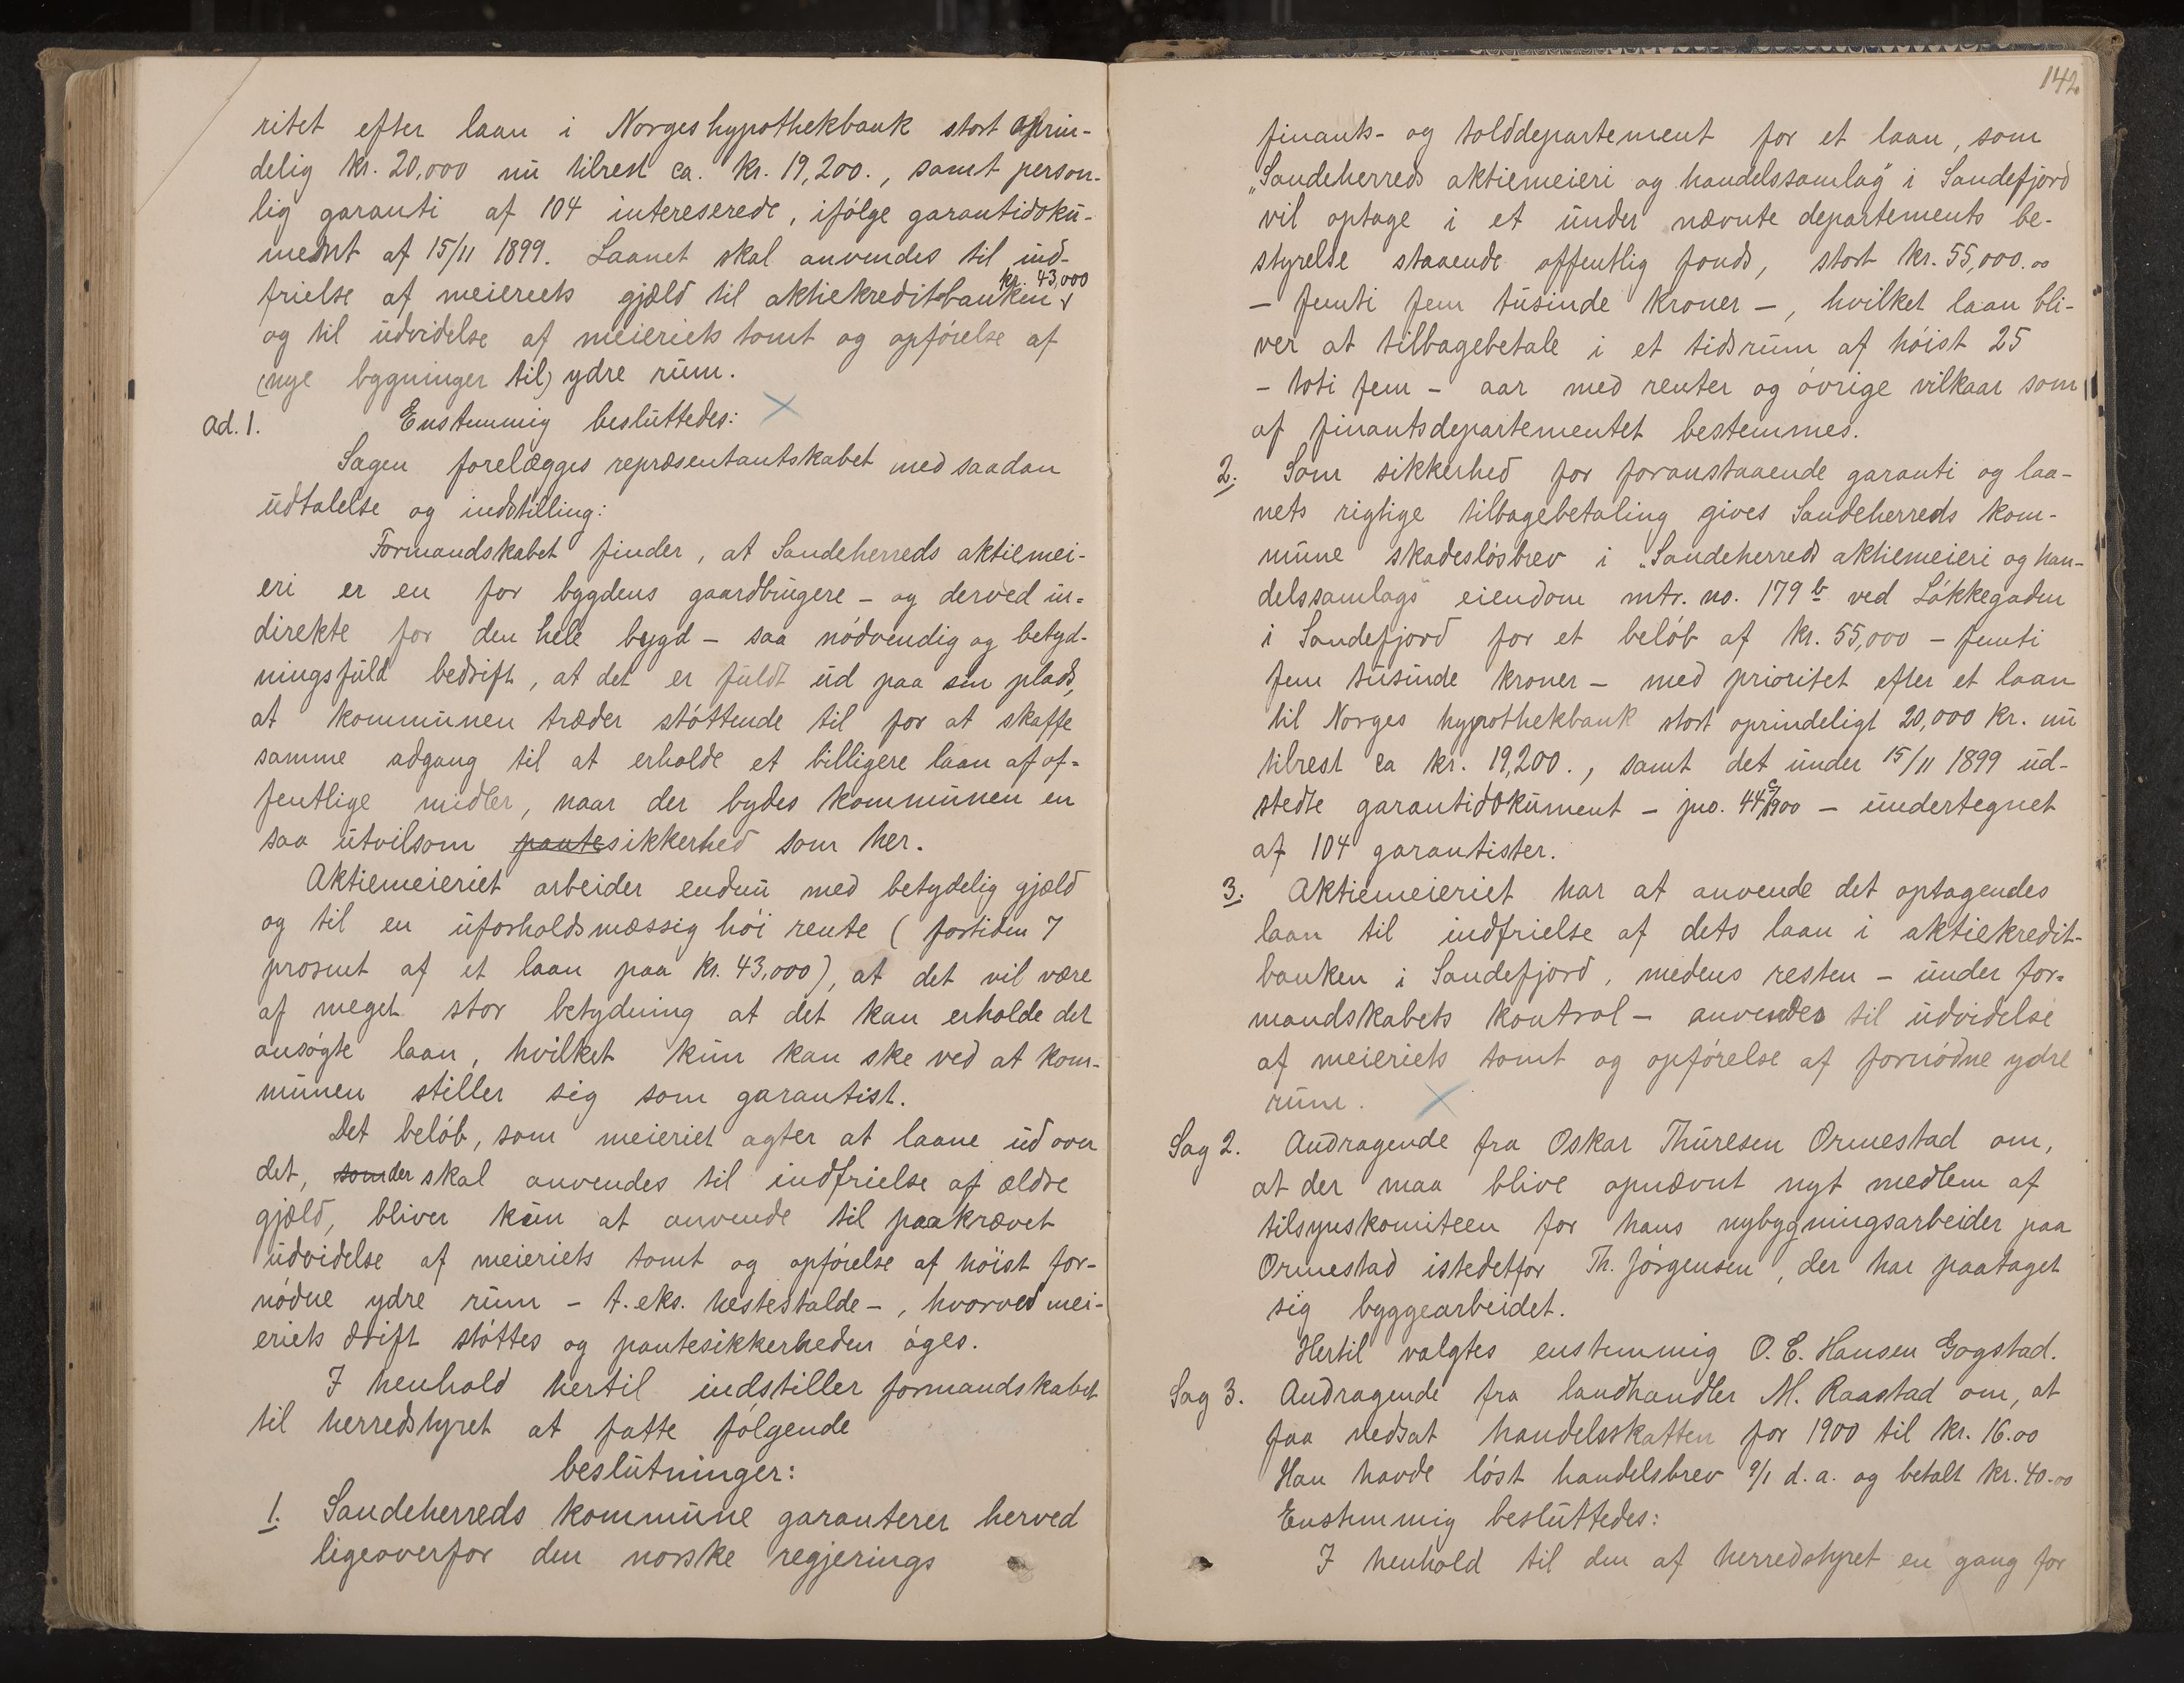 ritet efter laan i Norges hypothekbank stort oprin-
delig kr. 20,000 nu tilrest ca. kr. 19,200., samt person-
lig garanti af 104 intereserede, ifølge garantidoku-
ment af 15/11 1899. Laanet skal anvendes til ind-
kr. 43,000
frielse af meieriets gjæld til aktiekreditbanken
og til udvidelse af meieriets tomt og opførelse af
(nye bygninger til) ydre rum.
ad. 1. Enstemmig besluttedes:
Sagen forelægges repræsentantskabet med saadan
udtalelse og indstilling:
Formandskabet finder, at Sandeherreds aktiemei-
eri er en for bygdens gaardbrugere – og derved in-
direkte for den hele bygd – saa nødvendig og betyd-
ningsfuld bedrift, at det er fuldt ud paa sin plads,
at kommunen træder støttende til for at skaffe
samme adgang til at erholde et billigere laan af of-
fentlige midler, naar der bydes kommunen en
saa utvilsom pantesikkerhed som her.
Aktiemeieriet arbeider endnu med betydelig gjæld
og til en uforholdsmæssig høi rente (fortiden 7
prosent af et laan paa kr. 43,000), at det vil være
af meget stor betydning at det kan erholde det
ansøgte laan, hvilket kun kan ske ved at kom-
munen stiller sig som garantist.
Det beløb, som meieriet agter at laane ud over
det, som der skal anvendes til indfrielse af ældre
gjæld, bliver kun at anvende til paakrævet
udvidelse af meieriets tomt og opførelse af høist for-
nødne ydre rum – t. eks. hestestalde –, hvorved mei-
eriets drift støttes og pantesikkerheden øges.
I henhold hertil indstiller formandskabet
til herredstyret at fatte følgende
beslutninger:
1. Sandeherreds kommune garanterer herved
ligeoverfor den norske regjerings
142
finants- og tolddepartement for et laan, som
„Sandeherreds aktiemeieri og handelssamlag" i Sandefjord
vil optage i et under nævnte departements be-
styrelse staaende offentlig fonds, stort kr. 55,000.00
– femti fem tusinde kroner –, hvilket laan bli-
ver at tilbagebetale i et tidsrum af høist 25
– toti fem – aar med renter og øvrige vilkaar som
af finantsdepartementet bestemmes.
2. Som sikkerhed for foranstaaende garanti og laa-
nets rigtige tilbagebetaling gives Sandeherreds kom-
mune skadesløsbrev i „Sandeherreds aktiemeieri og han-
delssamlags" eiendom mtr. no. 179 b ved Løkkegaden
i Sandefjord for et beløb af kr. 55,000 – femti
fem tusinde kroner – med prioritet efter et laan
til Norges hypothekbank stort oprindeligt 20,000 kr. nu
tilrest ca kr. 19,200., samt det under 15/11 1899 ud-
stedte garantidokument – jno. 44/1900 – undertegnet
af 104 garantister.
3. Aktiemeieriet har at anvende det optagendes
laan til indfrielse af dets laan i aktiekredit-
banken i Sandefjord, medens resten – under for-
mandskabets kontrol – anvendes til udvidelse
af meieriets tomt og opførelse af fornødne ydre
rum.
Sag 2. Andragende fra Oskar Thuresen Ormestad om,
at der maa blive opnævnt nyt medlem af
tilsynskomiteen for hans nybygningsarbeider paa
Ormestad istedetfor Th. Jørgensen, der har paataget
sig byggearbeidet.
Hertil valgtes enstemmig O. E. Hansen Gogstad.
Sag 3. Andragende fra landhandler M. Raastad om, at
faa nedsat handelsskatten for 1900 til kr. 16.00
Han havde løst handelsbrev 9/1 d. a. og betalt kr. 40.00
Enstemmig besluttedes:
I henhold til den af herredstyret en gang for